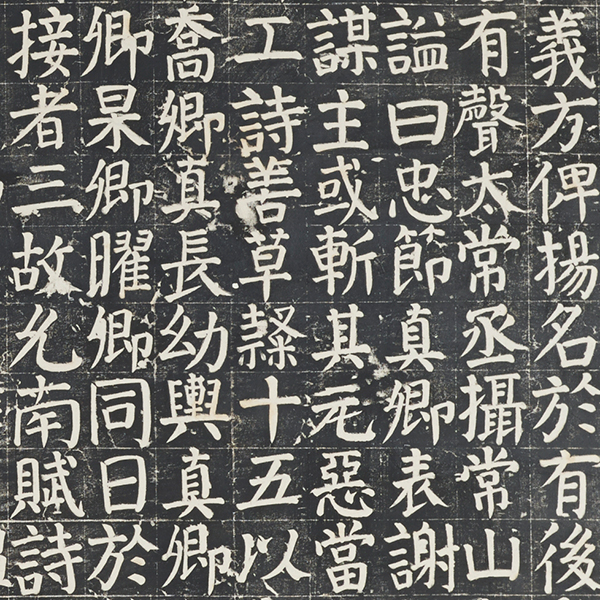 義方俾揚名於有後
有聲太常丞攝常山
謚曰忠節真卿表謝
謀主或斬其元惡當
工詩善草隸十五以
喬卿真長幼輿真卿
卿杲卿曜卿同日於
接者三故允南賦詩